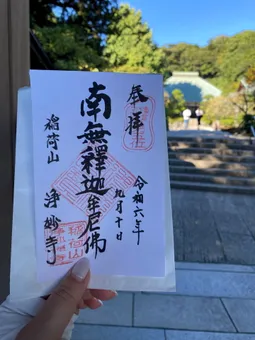 奉拝
令和六年
九月十日
南無釋迦牟尼佛
稲荷山
浄妙寺